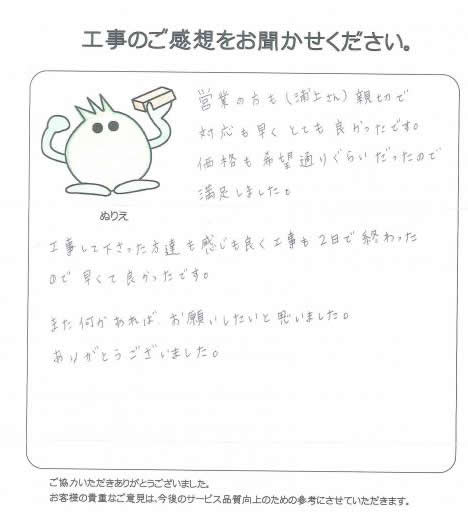 工事のご感想をお聞かせください。
営業の方も(浦上さん)親切で
対応も早くとても良かったです。
価格も希望通りぐらいだったので
満足しました。
ぬりえ
工事して下さった方達も感じも良く工事も2日で終わった
ので早くて良かったです。
また何かあればお願いしたいと思いました。
ありがとうございました。
ご協力いただきありがとうございました。
お客様の貴重なご意見は、今後のサービス品質向上のための参考にさせていただきます。